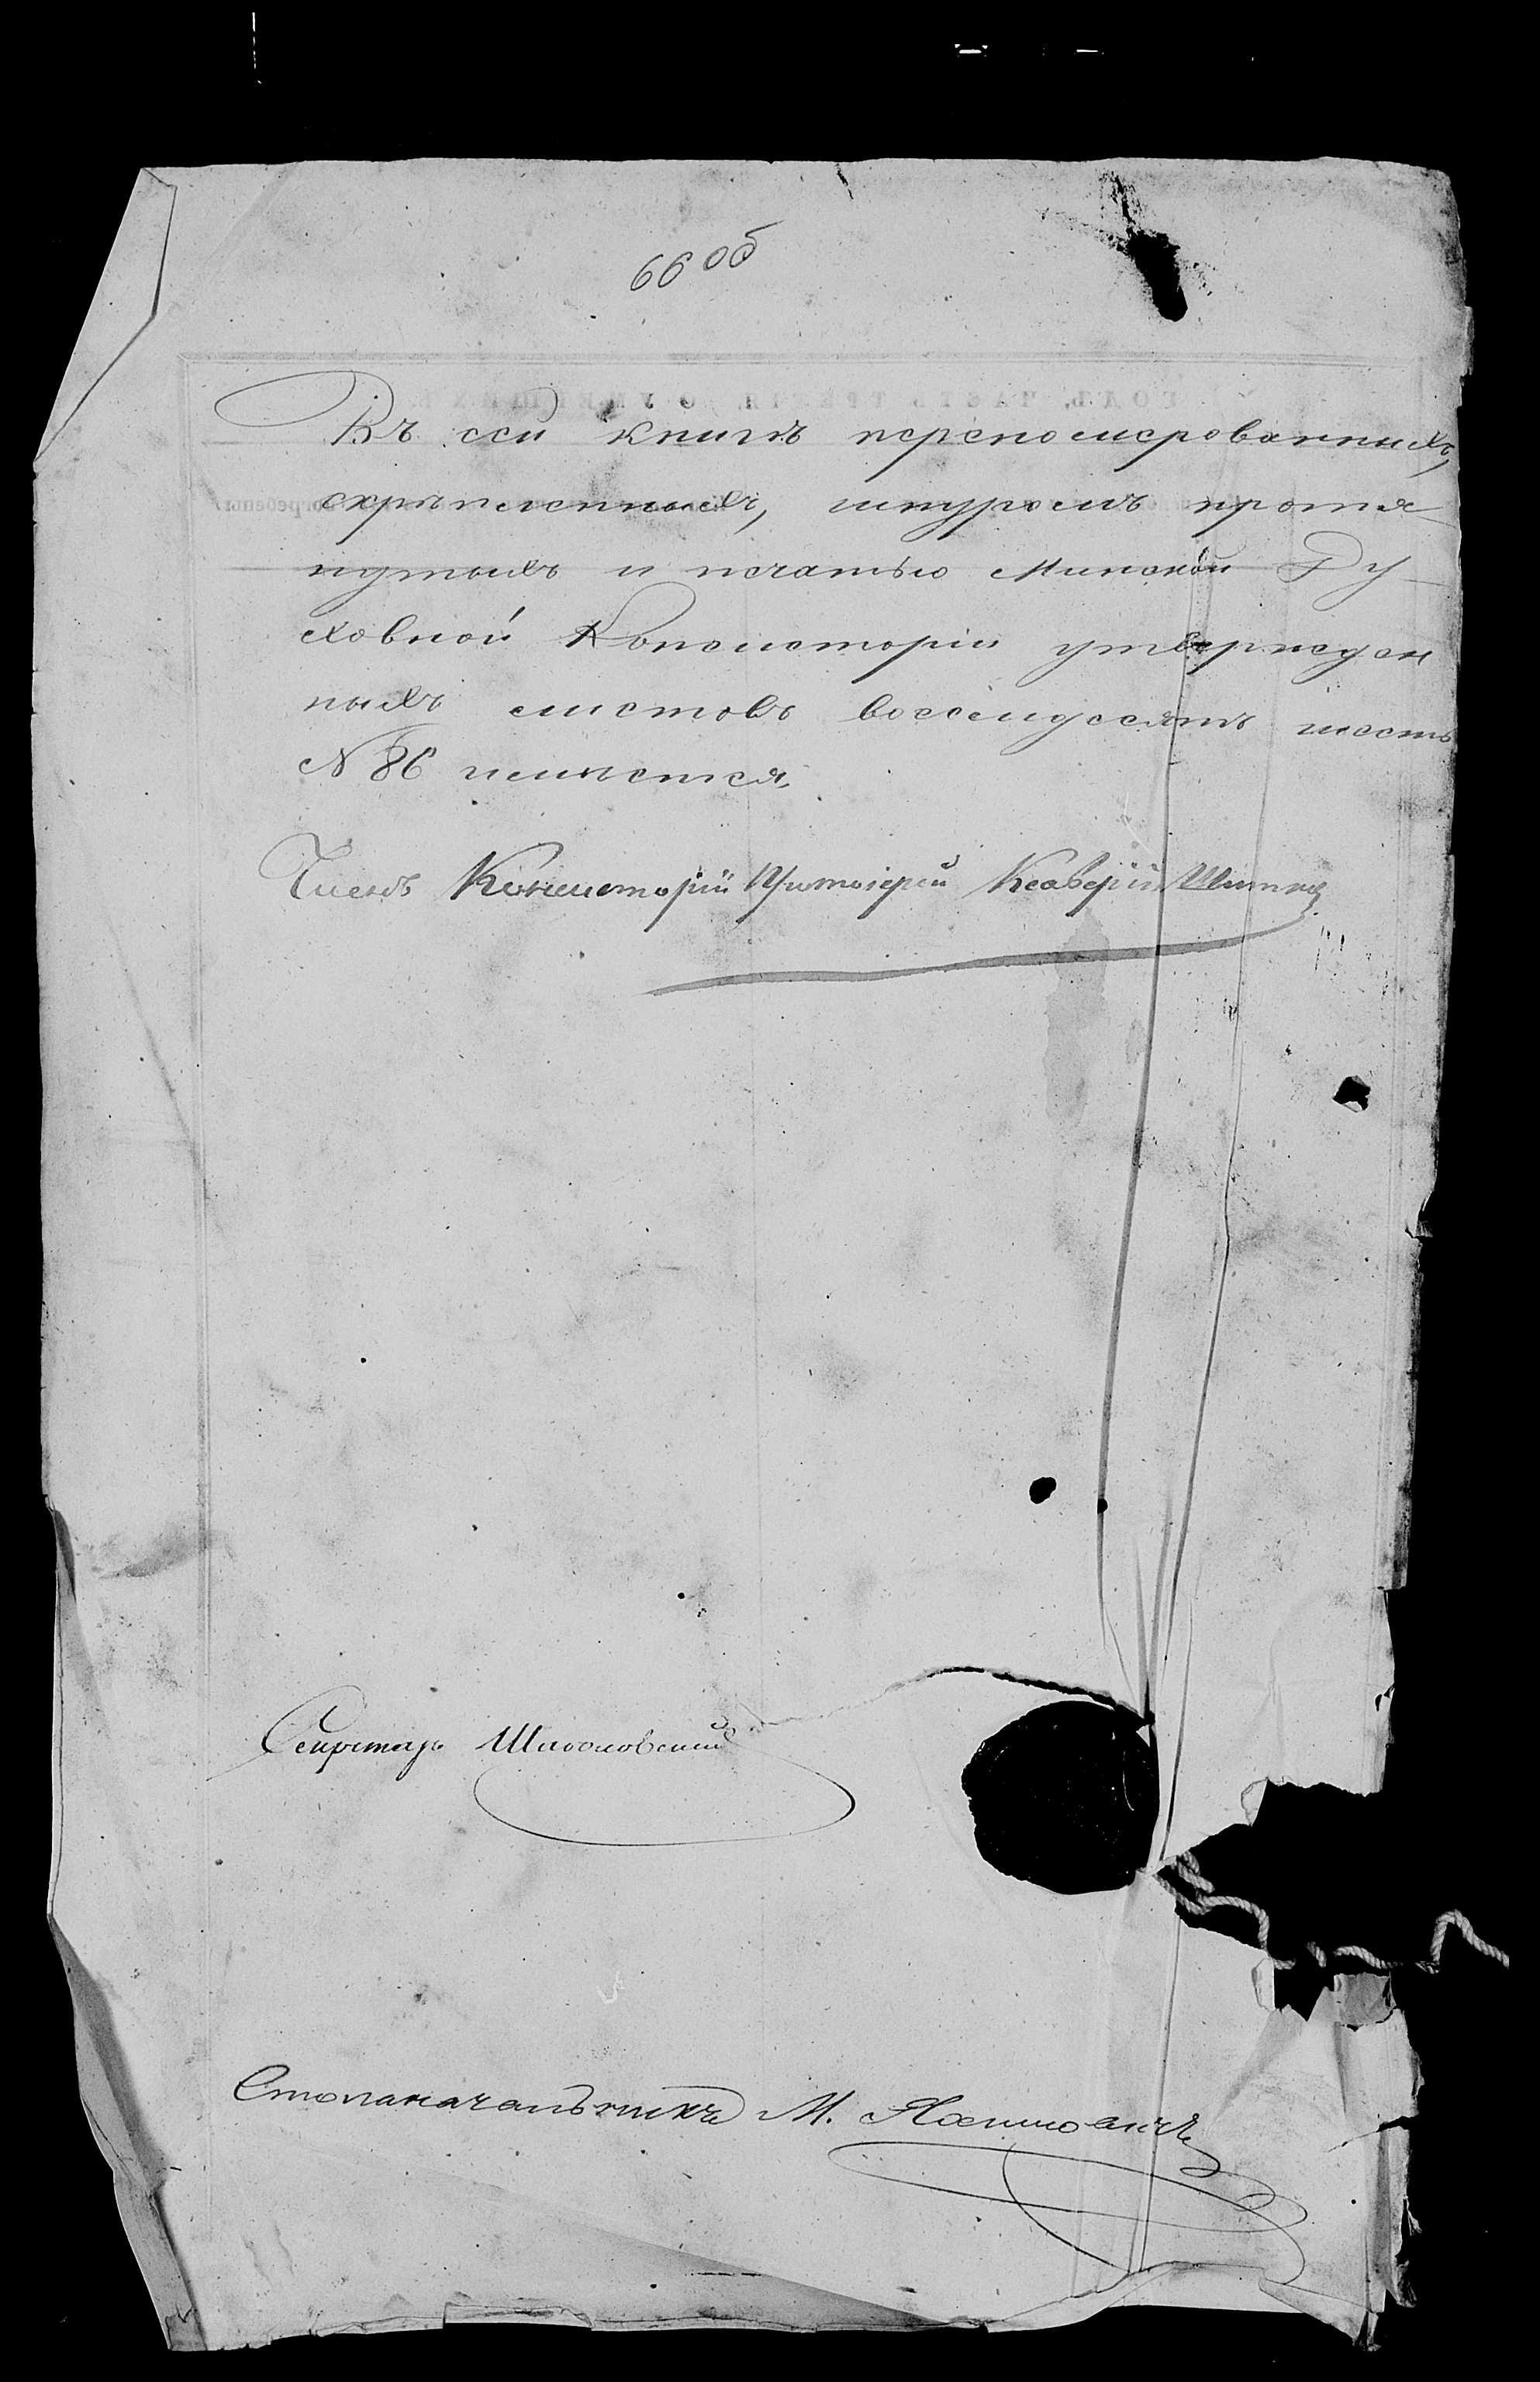 66 об
Въ сей книгѣ перенумерованныхъ,
скрѣпленныхъ, шнуромъ протя-
нутыхъ и печатью Минской Ду-
ховной Консисторіи утвержден
ныхъ листовъ восемдесятъ шесть
№ 86 имѣется
Членъ Консисторіи Протоіерей Ксаверій
Секретарь
Столоначальникъ М.